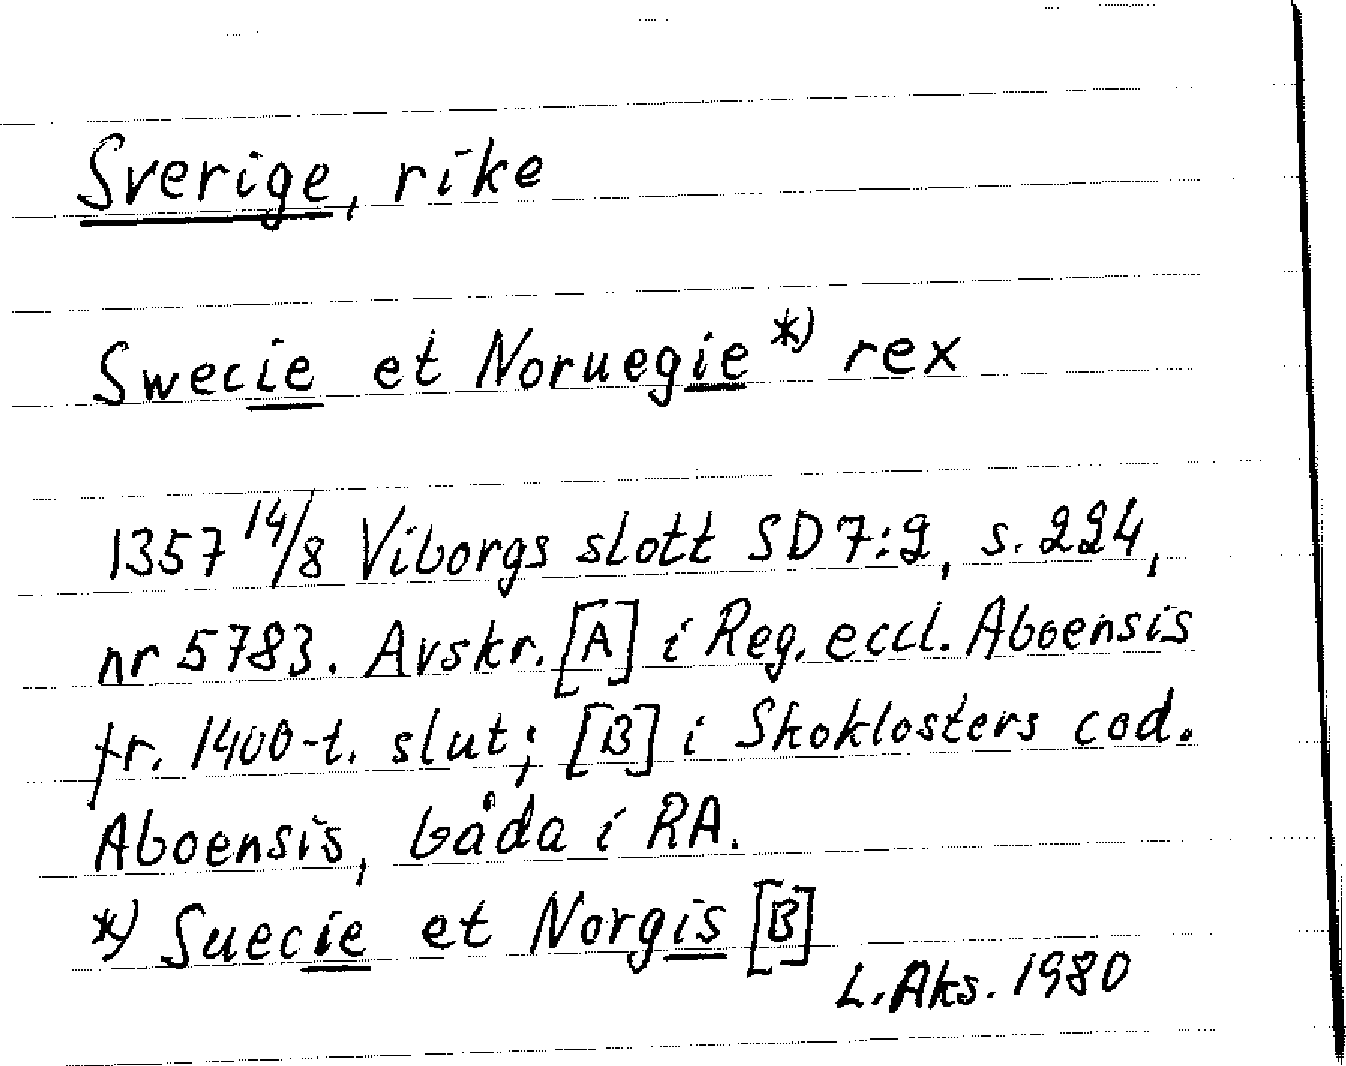 Sverige, rike
Swecie et Noruegie *) rex
1357 14/8 Viborgs slott SD 7:2, s. 224,
nr 5783. Avskr. [A] i Reg. eccl. Aboensis
fr. 1400-t. slut; [B] i Skoklosters cod.
Aboensis, båda i RA.
*) Suecie et Norgis [B]
L. Aks. 1980